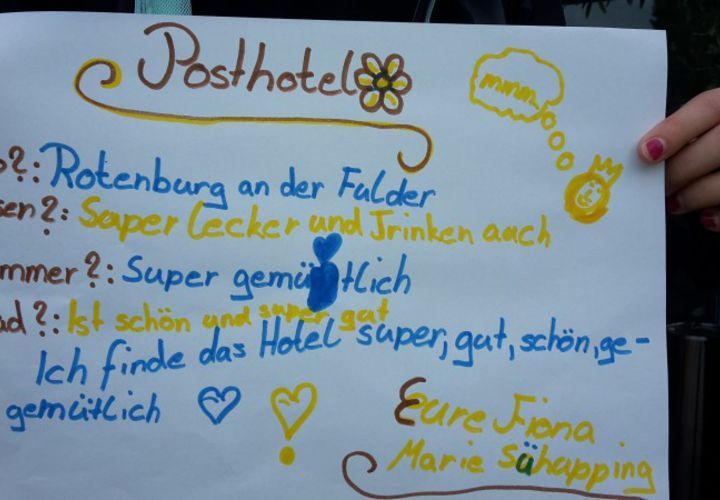 Posthotel
mmm
o?: Rotenburg an der Fulder
sen?: Super lecker und Trinken auch
mmer?: Super gemütlich
ad?: Ist schön und super gut
Ich finde das Hotel super, gut, schön, ge-
gemütlich
Eure Fiona
Marie